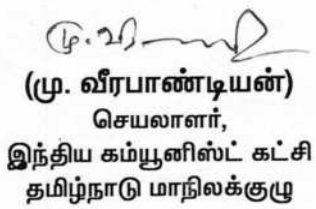 மு. வீ
(மு. வீரபாண்டியன்)
செயலாளர்,
இந்திய கம்யூனிஸ்ட் கட்சி
தமிழ்நாடு மாநிலக்குழு